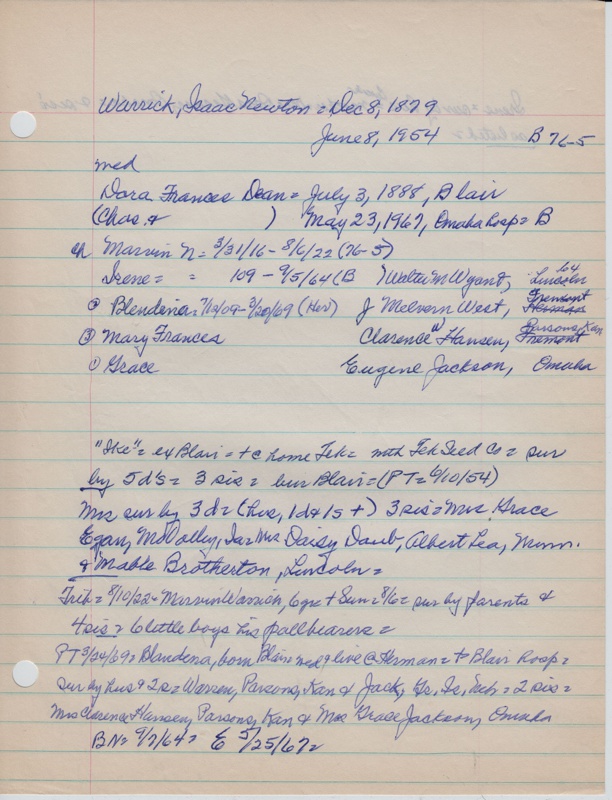 Warrick, Isaac Newton = Dec 8, 1879
June 8, 1954 B 76-5
med
Dora Frances Dean = July 3, 1888, Blair
(Chas. & ) May 23, 1967, Omaha Hosp = B
ch Marvin N = 3/31/16 - 8/6/22 (76-5)
Irene = = 109 - 9/5/64 (B ) Walter M Wyant, Lincoln 64
② Blendena = 7/12/09 - 3/20/69 (Her) J Melvern West, Fremont Herman
③ Mary Frances Clarence W Hansen, Fremont Parsons, Kan
① Grace Eugene Jackson, Omaha
"Ike" = ex Blair = + @ home Tek = with Tek Seed Co = sur
by 5 d's = 3 sis = bur Blair = (PT = 6/10/54)
Mrs sur by 3 d = (hus, 1d & 1s +) 3 sis = Mrs. Grace
Egan, Mo Valley, Ia = Mrs Daisy Daub, Albert Lea, Minn.
& Mable Brotherton, Lincoln =
Trib = 8/10/22 = Marvin Warrick, 6 yr + Sun = 8/6 = sur by parents &
4 sis = 6 little boys his pallbearers =
PT 3/24/69 = Blandena, born Blair = med & live @ Herman = + Blair Hosp =
sur by hus & 2 s = Warren, Parsons, Kan & Jack, Gr. Is, Neb = 2 sis =
Mrs Clarence Hansen, Parsons, Kan & Mrs Grace Jackson, Omaha
BN = 9/7/64 = E 5/25/67 =